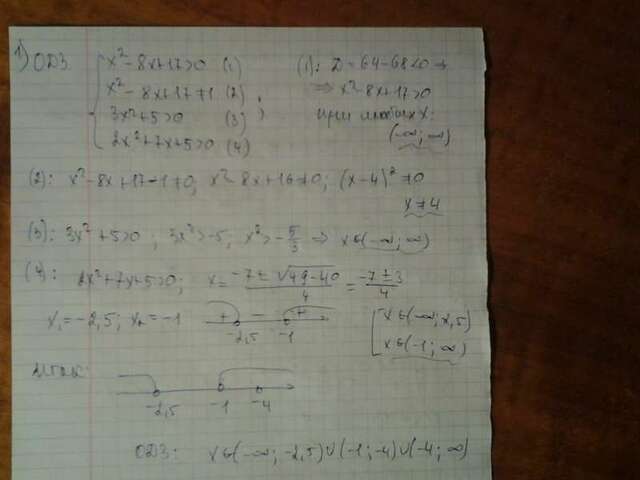 1) ОДЗ
x² - 8x+17>0 (1)
x² - 8x+17≠1 (2)
3x²+5>0 (3)
2x²+7x+5>0 (4)
(1): D = 64-68<0 ⇒
⇒ x²-8x+17>0
при любых x:
(-∞; ∞)
(2): x²-8x+17-1≠0; x²-8x+16≠0; (x-4)² ≠0
x≠4
(3): 3x²+5>0 ; 3x²>-5; x²>-5/3 ⇒ x∈(-∞; ∞)
(4): 2x²+7x+5>0; x= -7±√49-40 / 4 = -7±3 / 4
x₁=-2,5; x₂=-1
+ - +
-2,5 -1
x∈(-∞;2,5)
x∈(-1; ∞)
Итак:
-2,5 -1 -4
ОДЗ: x∈(-∞; -2,5)∪(-1;-4)∪(-4;∞)